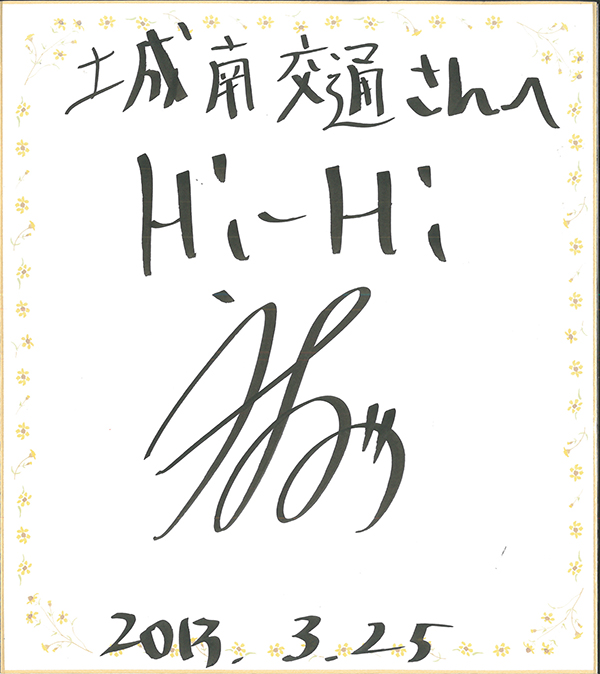 城南交通さんへ
Hi-Hi
2013. 3. 25